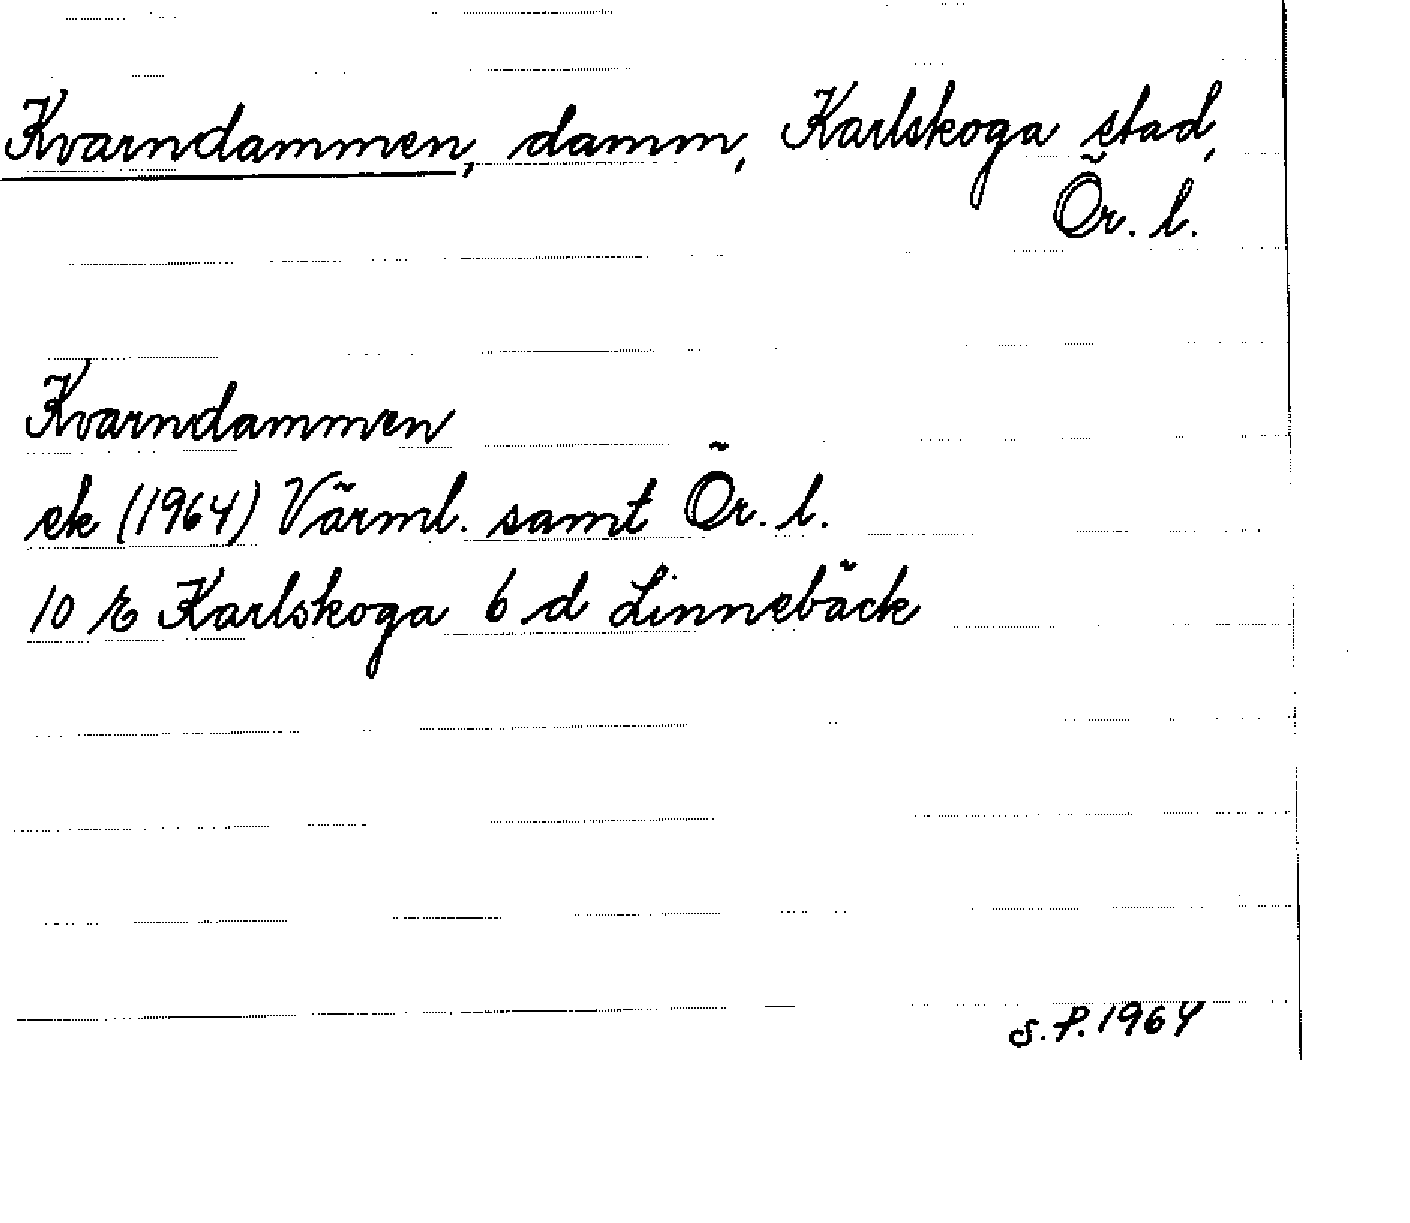 Kvarndammen, damm, Karlskoga stad,
Ör. l.
Kvarndammen
ek (1964) Värml. samt Ör. l.
10 E Karlskoga 6 d Linnebäck
S.F. 1964